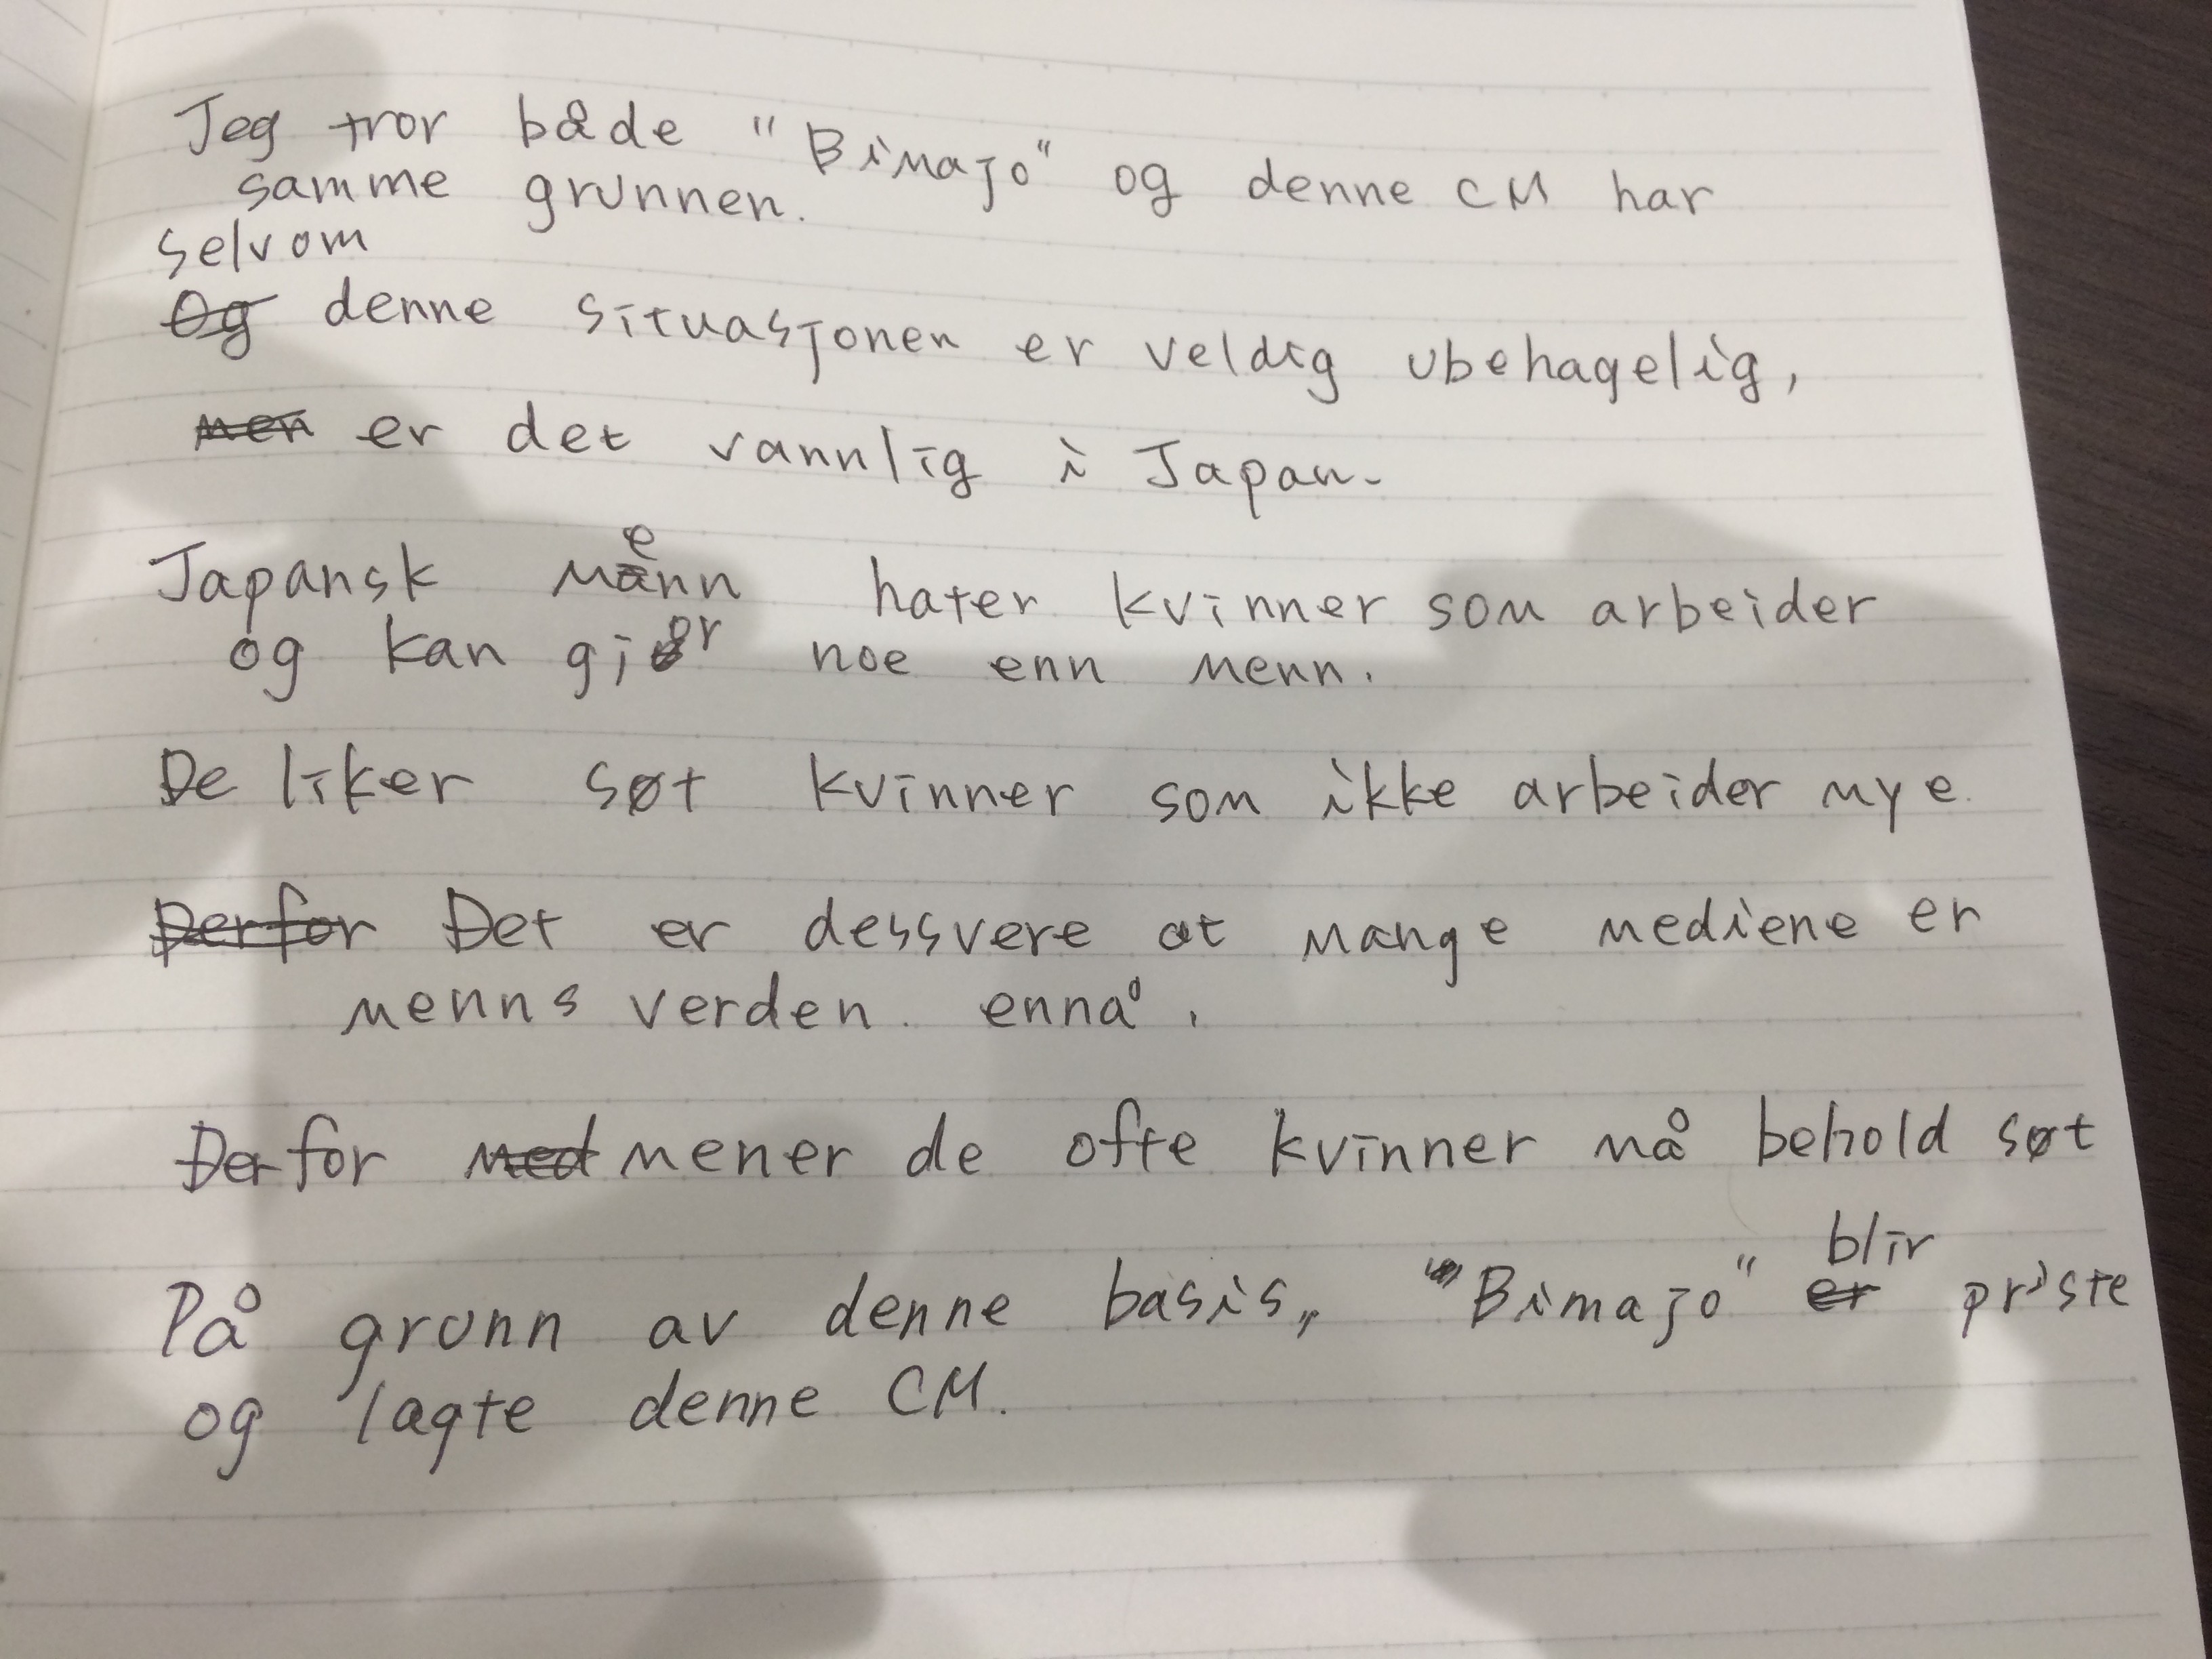 Jeg tror både "Bimajo" og denne CM har
samme grunnen.
selvom
Og denne situasjonen er veldig ubehagelig,
men er det vannlig i Japan.
Japansk menn hater kvinner som arbeider
og kan gjør noe enn menn.
De liker søt kvinner som ikke arbeider mye.
Derfor Det er dessvere at mange mediene er
menns verden. ennå.
Derfor med mener de ofte kvinner må behold søt
blir
På grunn av denne basis, "Bimajo" er priste
og lagte denne CM.